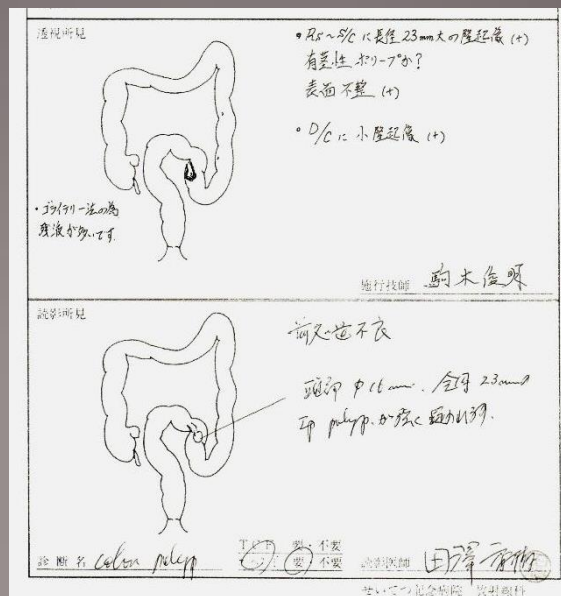 透視所見
• Rs~S/Cに長径23mm大の隆起像(+)
有茎性ポリープか?
表面不整(+)
• D/Cに小隆起像(+)
・ゴライテリー法の為
残液が多いです
施行技師 駒木俊明
読影所見
前処置不良
頭部 φ16mm. 全長 23mmの
Ip polyp. が強く疑われます.
TCF 要・不要
診断名 colon polyp 要 不要 読影医師 田澤
せいてつ記念病院 放射線科